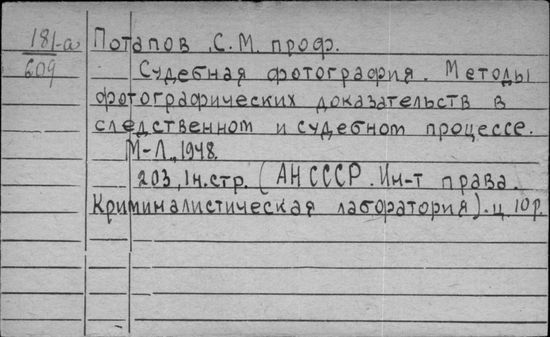 181-а Потапов С.М. проф.
609 Судебная фотография. Методы
фотографических доказательств в
следственном и судебном процессе.
М-Л., 1948.
203, 1н.стр. (АН СССР. Ин-т права.
Криминалистическая лаборатория). ц. 10р.